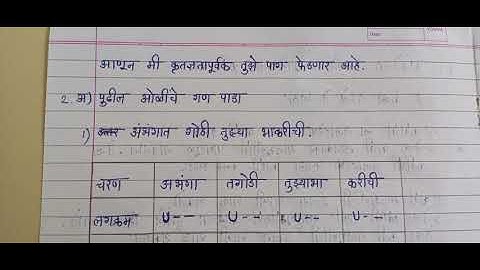 आणून मी कृतज्ञतापूर्वक तुझे पाग फेडणार आहे.
2. अ) पुढील ओळींचे गण पाडा
1) अभंगात गोडी तुझ्या भाकरीची.
चरण अभंगा तगोडी तुझ्याभा करीची
लगक्रम U-- U-- U-- U--